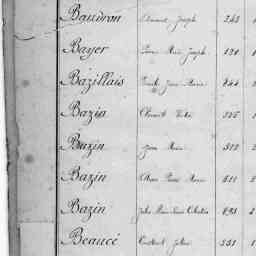 Baudron Clément Joseph 243
Bayer Pierre Marie Joseph 120
Bazillais Jean Marie 244
Bazin Clément 225
Bazin Jean Marie 512
Bazin Pierre Marie 511
Bazin Jules Marie Célestin 693
Beaucé Constant Julien 551